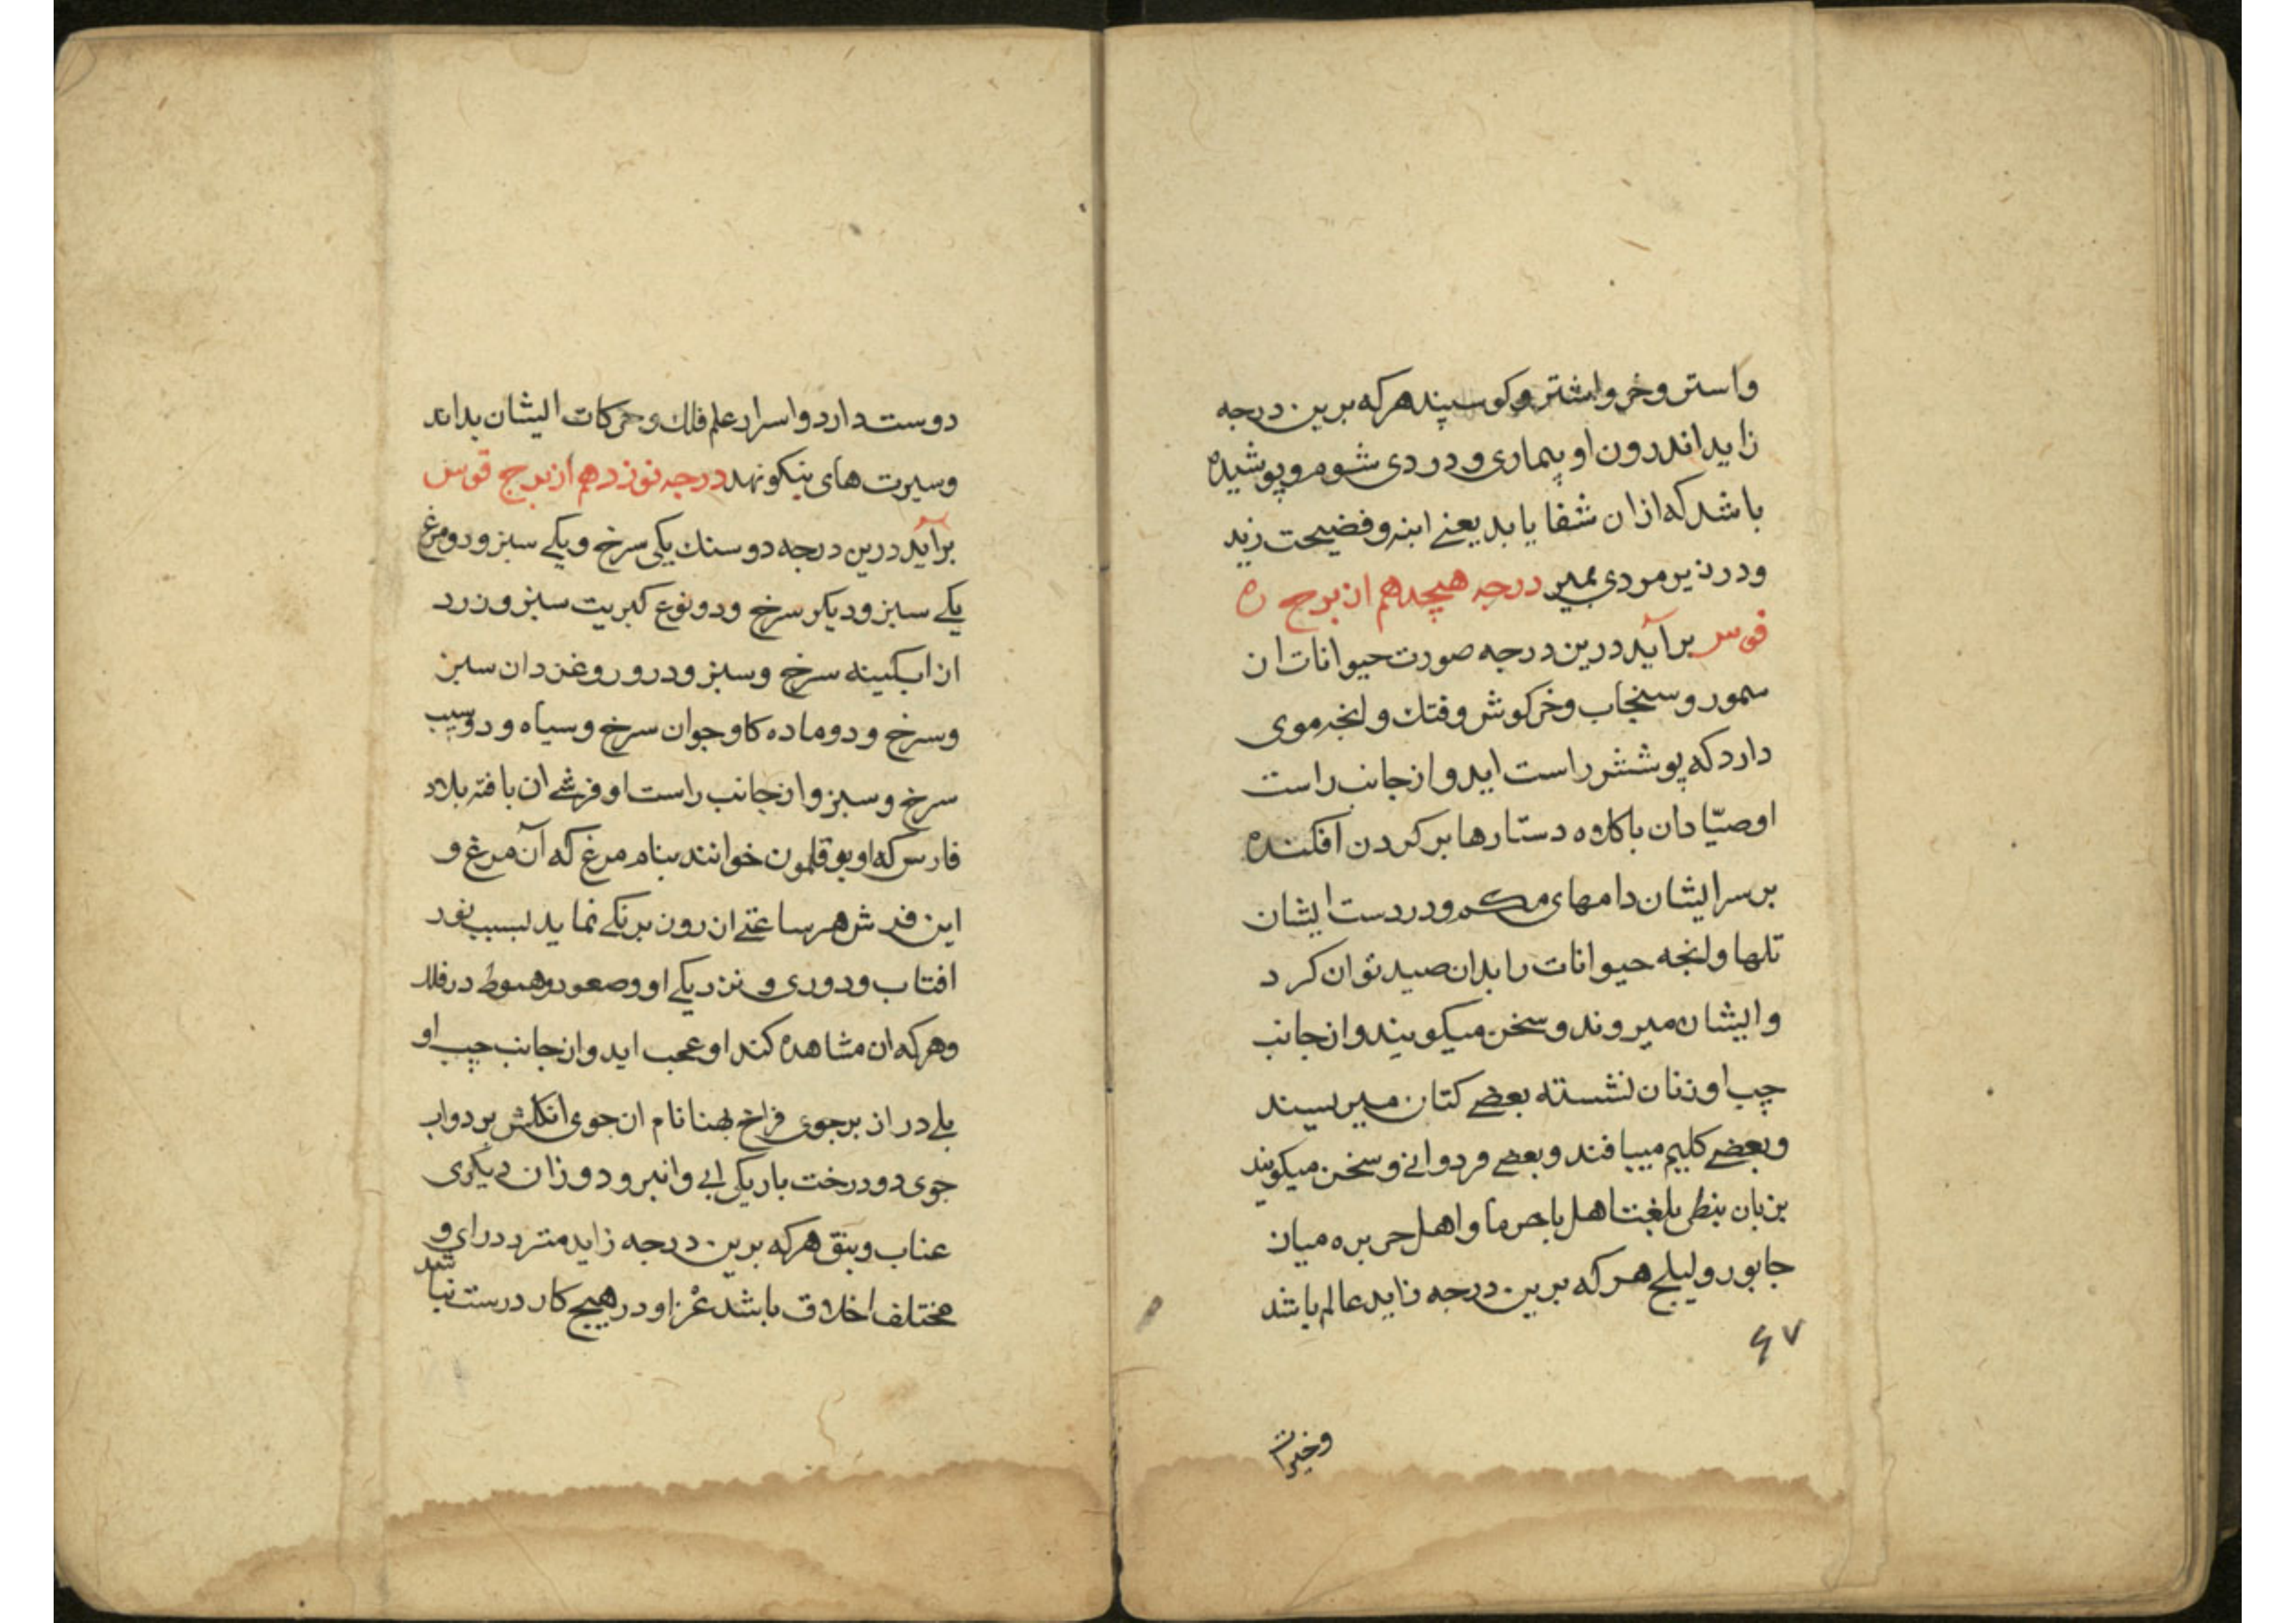 واستر و خر و اشتر و کوسپند هر که برین درجه
زاید اندرون او بیماری و دردی شوم و پوشیده
باشد که ازان شفا یابد یعنی ابنه و فضیحت زید
و در زیر مردی بمیرد درجه هیچدهم از برج ه
قوس برآید درین درجه صورت حیوانات از
سمور و سنجاب و خرکوش و فنك و انچه موی
دارد که پوشش راست اید و از جانب راست
او صیّادان با کلاه دستارها بر کردن افکنده
بر سر ایشان دامهای محکم و در دست ایشان
تلها و انچه حیوانات را بدان صید توان کرد
و ایشان میروند و سخن میکویند و از جانب
چپ او زنان نشسته بعضی کتان میریسند
و بعضی کلیم میبافند و بعضی فردوانی و سخن میکویند
بزبان بنطی بلغت اهل باجرما و اهل جزیره میان
جابور و لیلج هر که برین درجه زاید عالم باشد
۶۷
وخیرات
دوست دارد و اسرار علم فلك و حرکات ایشان بداند
و سیرت های نیکو نهد درجه نوزدهم از برج قوس
برآید درین درجه دو سنك یکی سرخ و یکی سبز و دو مرغ
یکی سبز و دیکر سرخ و دو نوع کبریت سبز و زرد
از ابکینه سرخ و سبز و درو روغن دان سبز
و سرخ و دو ماده کاو جوان سرخ و سیاه و دو سیب
سرخ و سبز و از جانب راست او فرشی از بافته بلاد
فارس که او بوقلمون خوانند بنام مرغ که آن مرغ و
این فرش هر ساعتی از رون برنکی نماید بسبب نور
افتاب و دوری و نزدیکی او و صعود و هبوط در فلك
و هر که ان مشاهده کند او عجب اید و از جانب چپ او
پلی دراز بر جوی فراخ پهنا نام ان جوی انکلش بر دو لب
جوی دو درخت باریکی ابی و انبرود و زان دیکری
عناب و بنق هر که برین درجه زاید متردد رای و
مختلف اخلاق باشد عزم او در هیچ کار درست نباشد